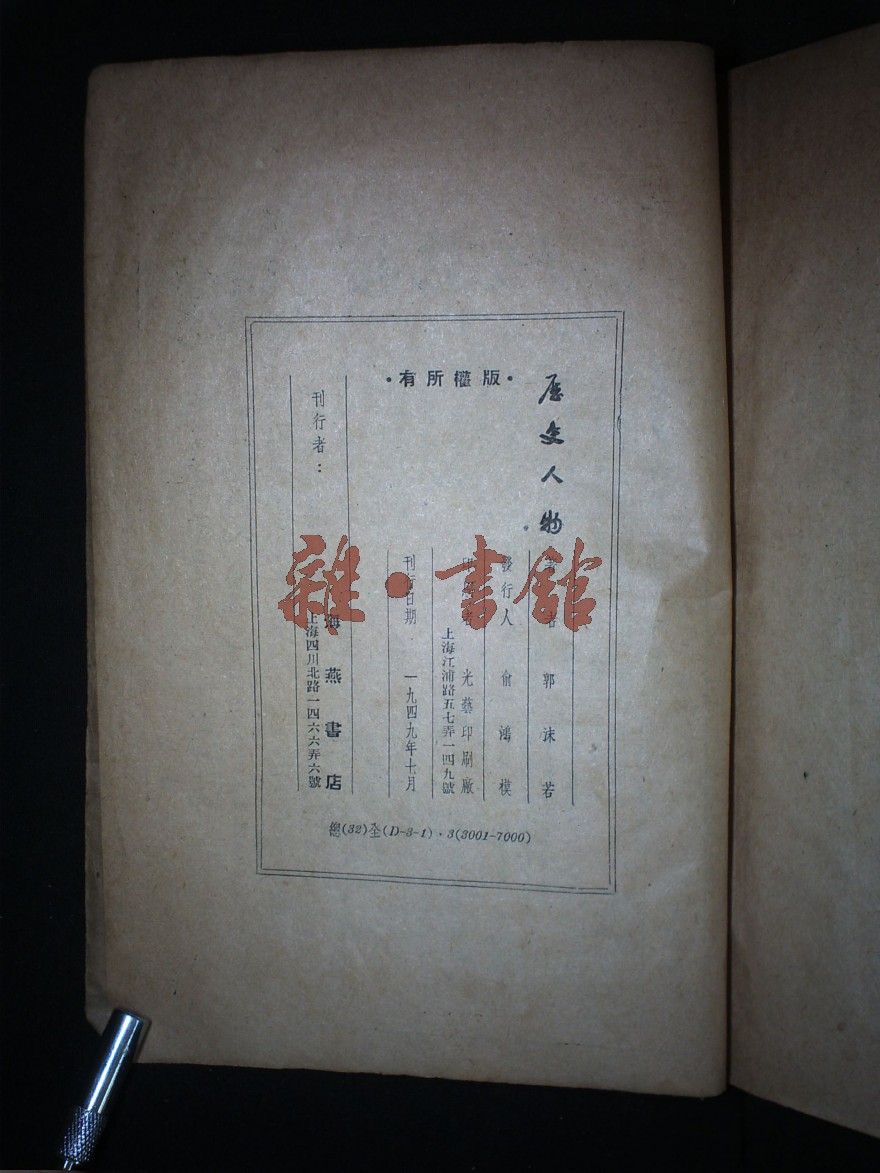 歷史人物
·版權所有·
著者 郭沫若
發行人 俞鴻模
印刷者 光藝印刷廠
上海江浦路五七弄一四九號
刊行日期 一九四九年七月
刊行者：
海燕書店
上海四川北路一四六六弄六號
總(32)圣(D-3-1)·3(3001-7000)
雜·書館